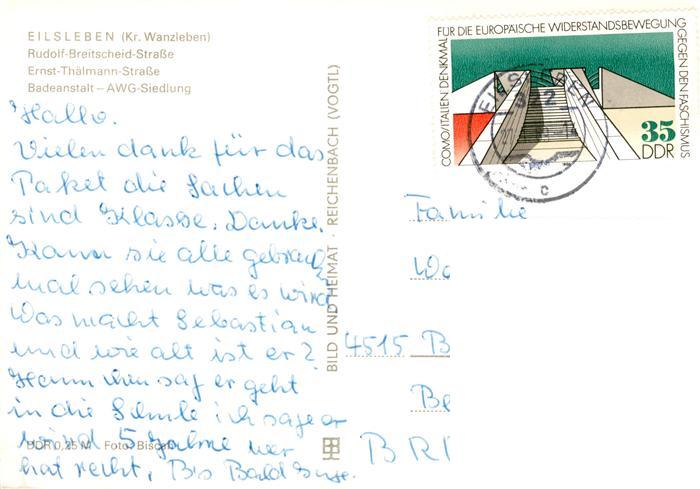 EILSLEBEN (Kr. Wanzleben)
Rudolf-Breitscheid-Straße
Ernst-Thälmann-Straße
Badeanstalt – AWG-Siedlung
Hallo.
Vielen dank für das
Paket die Sachen
sind Klasse. Danke.
Kann sie alle gebrau
mal sehen was es wird
Was macht Sebastian
und wie alt ist er?
Hann chen sag er geht
in die Schule ich sage er
wird 5 Jahre wer
hat recht. Bis Bald
DDR 0,25 M Foto:
BILD UND HEIMAT · REICHENBACH (VOGTL)
COMO/ITALIEN DENKMAL FÜR DIE EUROPÄISCHE WIDERSTANDSBEWEGUNG GEGEN DEN FASCHISMUS
35
DDR
EILSLEBEN
322
c
Familie
4515 B
Be
BR